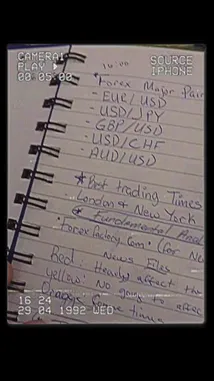 CAMERA1
PLAY ▶
00:05:00
SOURCE
IPHONE
10:00
*Forex Major Pair
- EUR/USD
- USD/JPY
- GBP/USD
- USD/CHF
- AUD/USD
*Best trading Times
London & New York
* Fundamental Anal
·Forexfactory.com· (for Ne
Red: News Files
Heavily affect the
Yellow: No
Orange: times
16 24
29 04 1992 WED